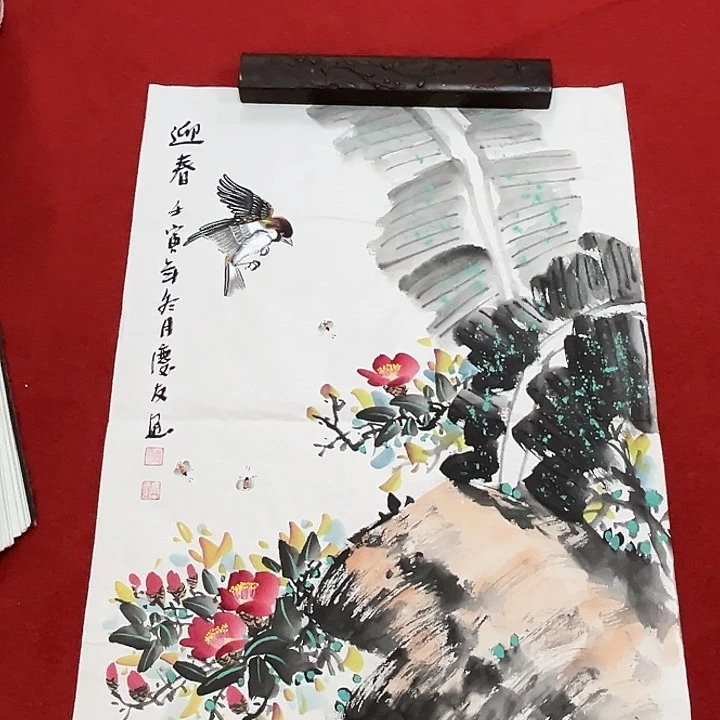 迎春壬寅年冬月慶友画